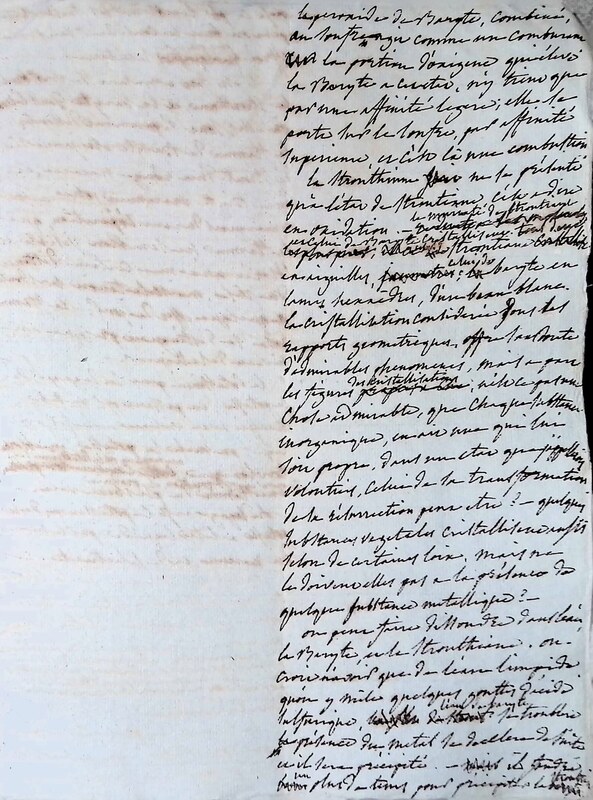 le peroxide de Baryte, combiné,
au soufre agir comme un comburan
la portion d'oxigene qu'eleve
la Baryte a cuette, n'y tient que
par une affinité legere; elle se
porte sur le soufre, par affinité
superieure, et c'est là une combustion
la strontiane ne se présente
qu'à l'état de strontiane, c'est à dire
en oxidation. — le muriate de strontiane
celui de Baryte cristallisent tous deux
strontiane
en aiguilles, celui de baryte en
lames hexaedres, d'un beau blanc.
la cristallisation considerée sous les
rapports geometriques, offre sans doute
d'admirables phenomenes, mais a part
les figures des cristallisations, n'est ce pas une
chose admirable, que chaque substance
inorganique, en ait une que lui
soit propre, dans un etat que j'appellerois
volontiers, celui de la transformation
de la résurrection peut etre? — quelques
substances vegetales cristallisent aussi
selon de certaines loix, mais ne
le doivent elles pas a la présence de
quelque substance metallique? —
on peut faire dissoudre dans l'eau
la Baryte, et la Strontiane. on
croit n'avoir que de l'eau limpide
qu'on y mêle quelques gouttes d'acide
sulfurique, l'eau de baryte se troublera
la présence du metal se decellera de suite
et il sera précipité. —
plus de tems pour précipiter la